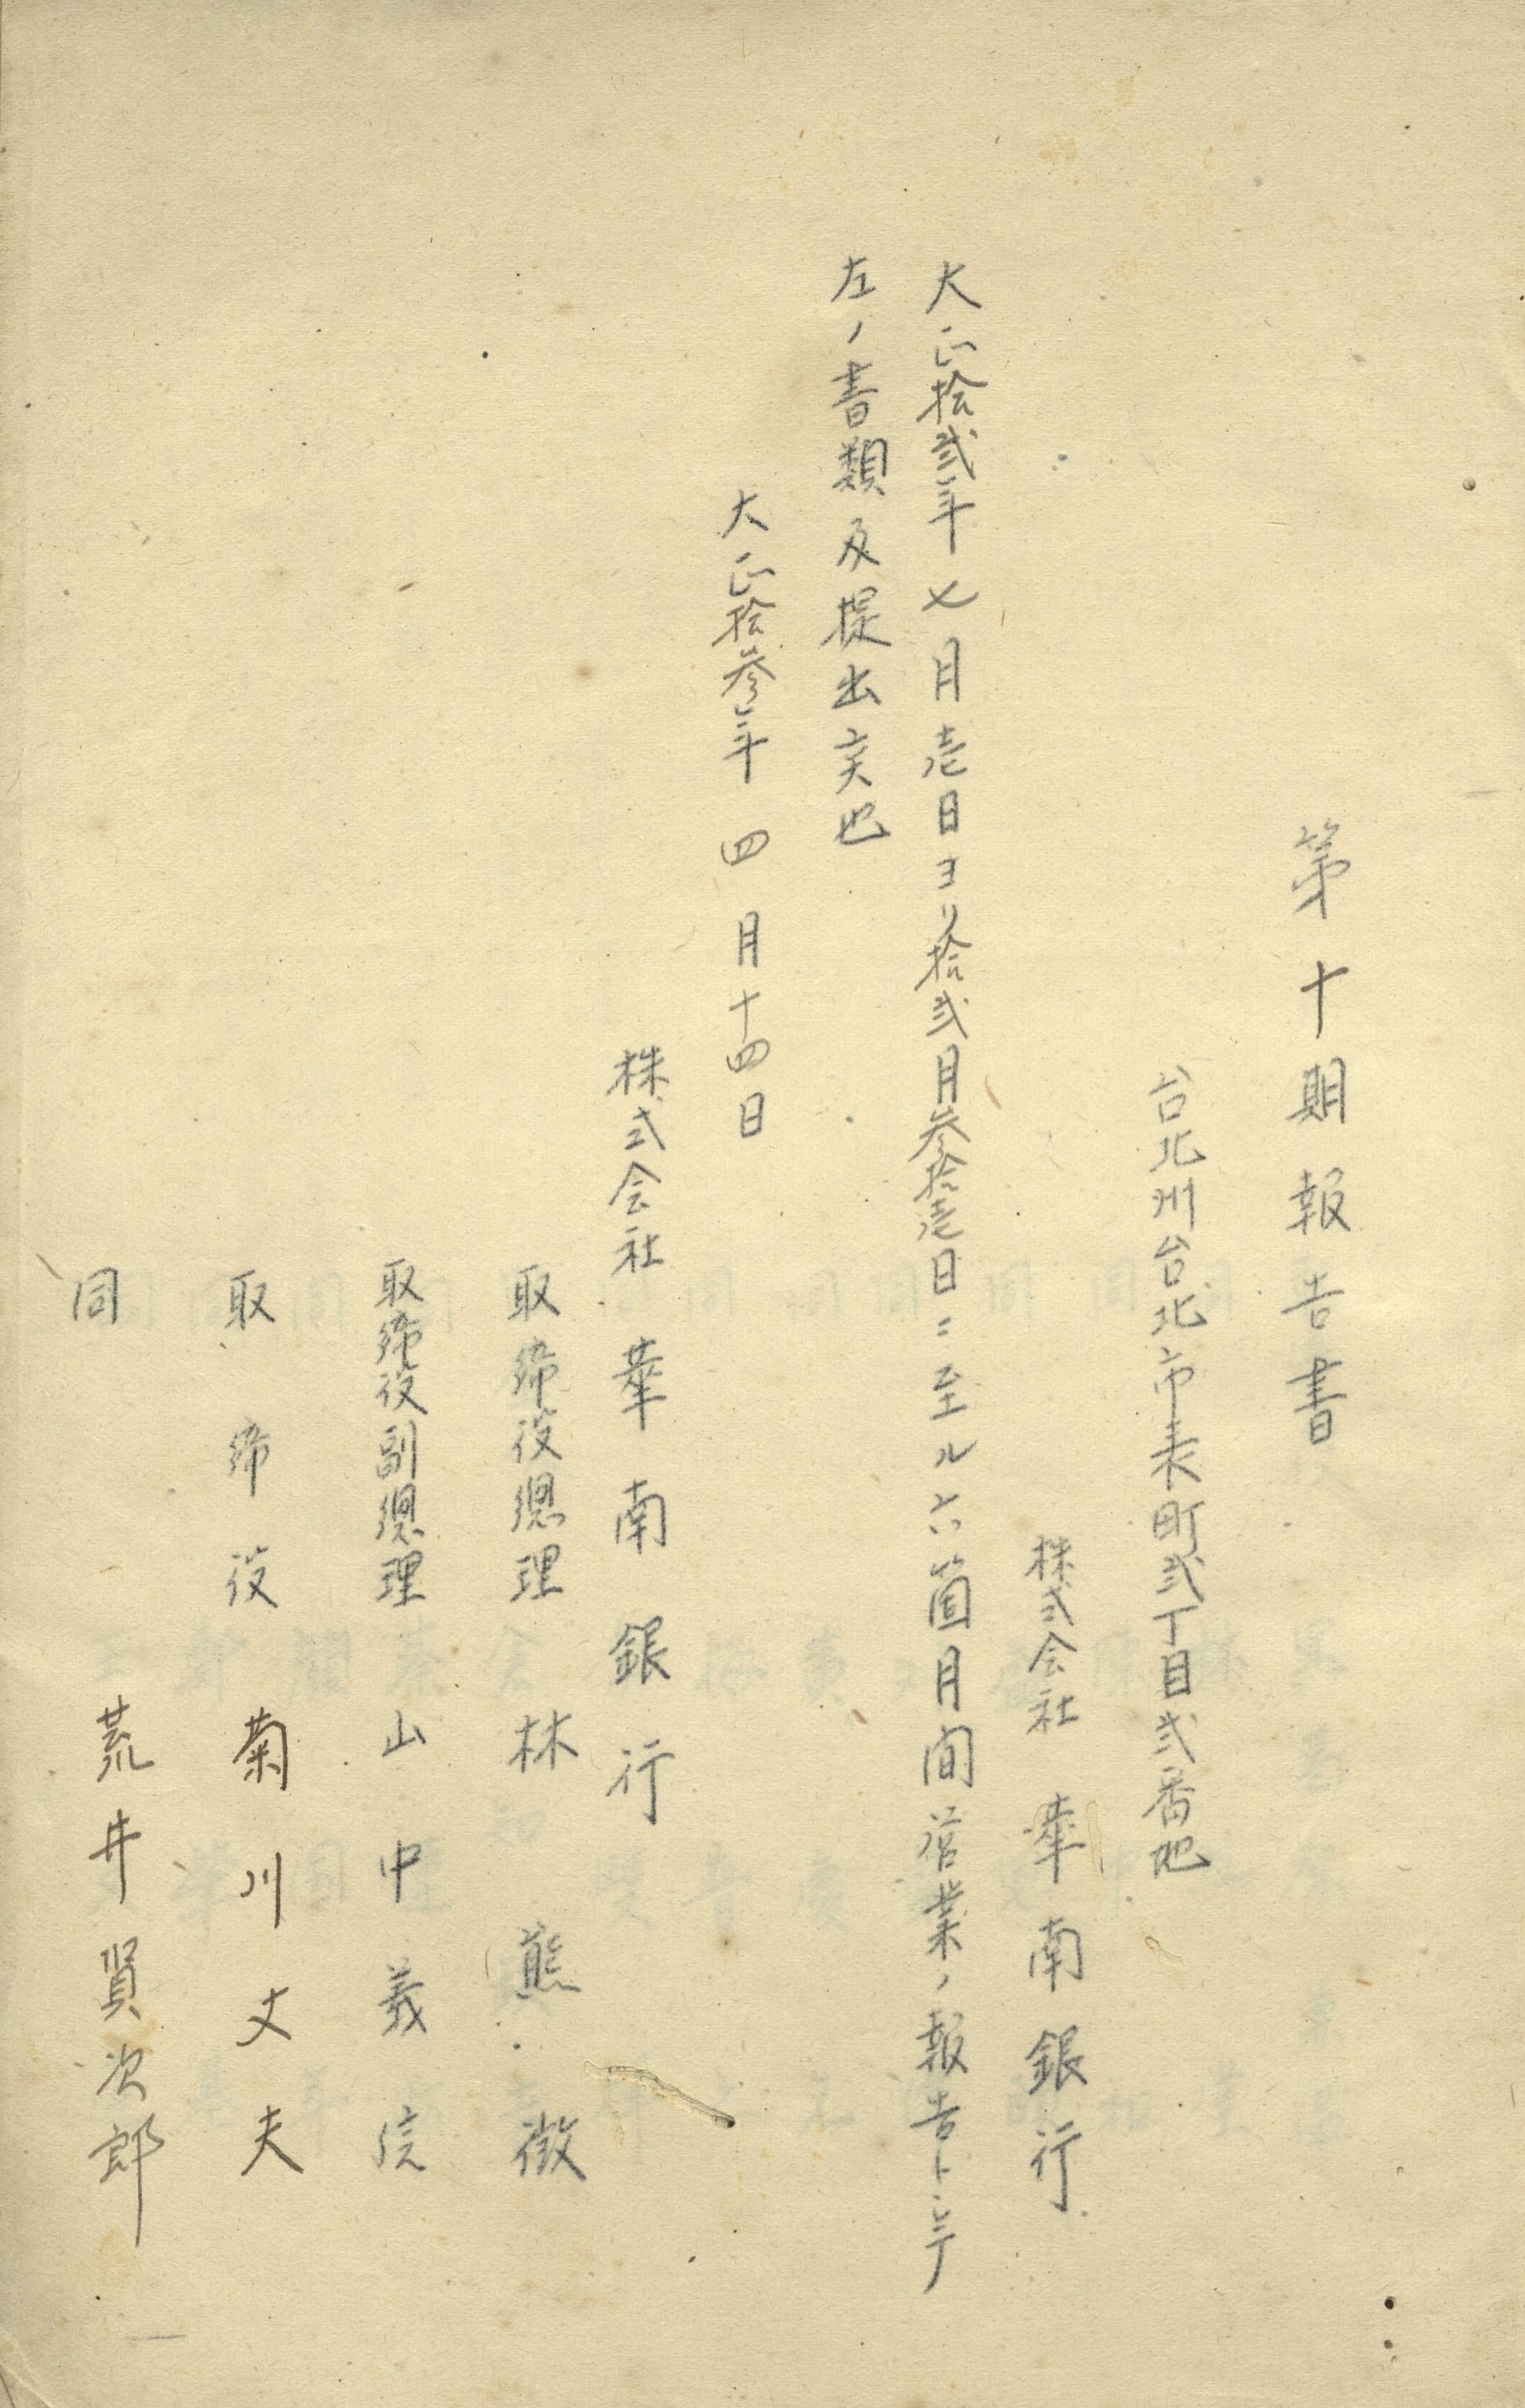 第十期報告書
台北州台北市表町弐丁目弐番地
株式会社 華南銀行
大正拾弐年七月壱日ヨリ拾弐月参拾壱日ニ至ル六箇月間営業ノ報告トシテ
左ノ書類及提出候也
大正拾参年四月十四日
株式会社 華南銀行
取締役總理 林熊徴
取締役副總理 山中義信
取締役 菊川丈夫
同 荒井賢次郎